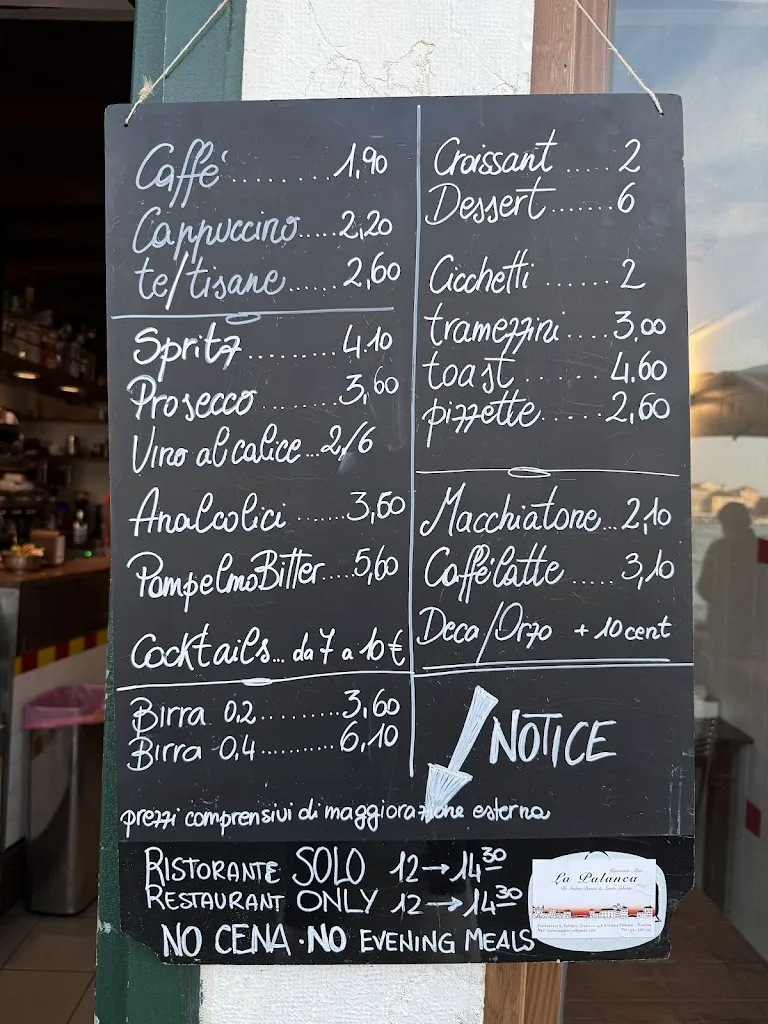 Caffé ......... 1,90
Cappuccino ..... 2,20
te/tisane ...... 2,60
Spritz .......... 4.10
Prosecco ......... 3,60
Vino al calice ... 2/6
Analcolici ....... 3,60
PompelmoBitter ..... 5,60
Cocktails ... da 7 a 10 €
Birra 0,2 .......... 3,60
Birra 0,4 .......... 6,10
Croissant ..... 2
Dessert ...... 6
Cicchetti ..... 2
tramezzini .... 3,00
toast ...... 4.60
pizzette ..... 2,60
Macchiatone ... 2,10
Caffélatte ..... 3,10
Deca/Orzo + 10 cent
NOTICE
prezzi comprensivi di maggiorazione esterna
RISTORANTE SOLO 12→14³⁰
RESTAURANT ONLY 12→14³⁰
NO CENA · NO EVENING MEALS
La Palanca